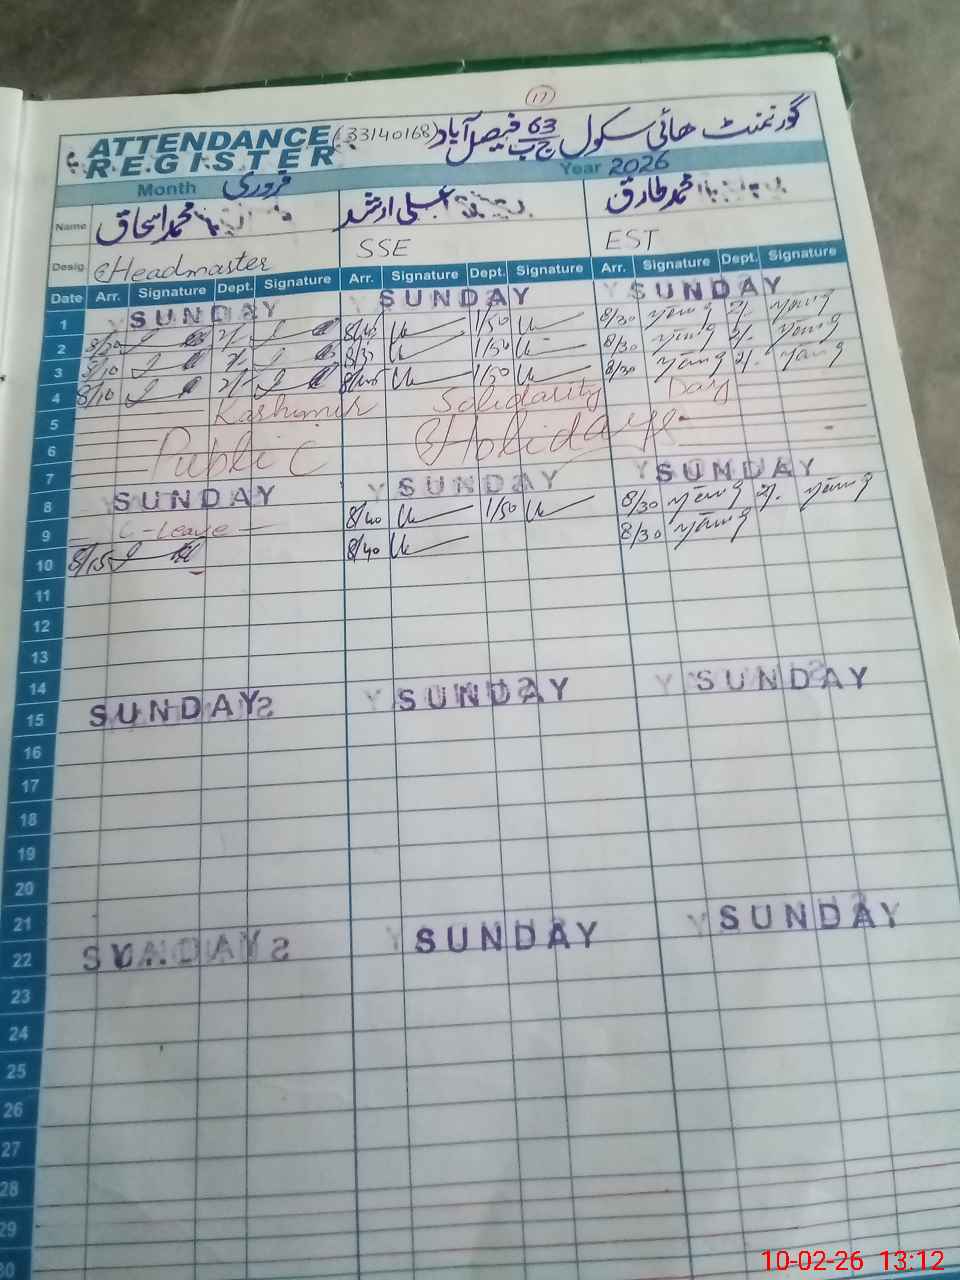 17
ATTENDANCE (33140168) گورنمنٹ ھائی سکول 63 ج ب فیصل آباد
REGISTER
Month فروری Year 2026
Name محمد اسحاق ارشد محمد طارق
Desig Headmaster SSE EST
Date Arr. Signature Dept. Signature Arr. Signature Dept. Signature Arr. Signature Dept. Signature
1 SUNDAY SUNDAY SUNDAY
2 8/30 2/- 8/45 1/50 8/30 2/-
3 8/10 2/- 8/35 1/50 8/30 2/-
4 8/10 2/- 1/50 8/30 2/-
5 Kashmir Solidarity Day
6 Public Holiday
7
8 SUNDAY SUNDAY SUNDAY
9 C-Leave 8/40 1/50 8/30 2/-
10 8/15 8/40 8/30
11
12
13
14
15 SUNDAY SUNDAY SUNDAY
16
17
18
19
20
21
22 SUNDAY SUNDAY SUNDAY
23
24
25
26
27
28
29
30
10-02-26 13:12